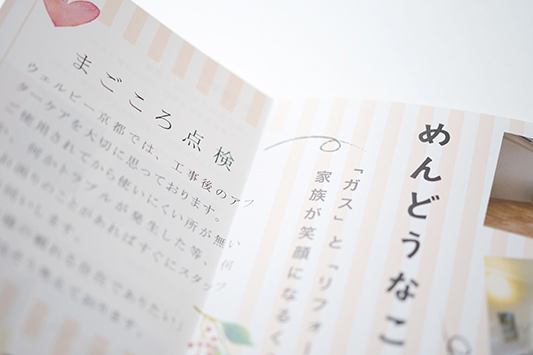 まごころ点検
ウェルビー京都では、工事後のアフ
ターケアを大切に思っております。
ご使用されてから使いにくい所が無い
か、何かトラブルが発生した等、何
お困りのことがあればすぐにスタッフ
めんどうなこ
「ガス」と「リフォー
家族が笑顔になるく